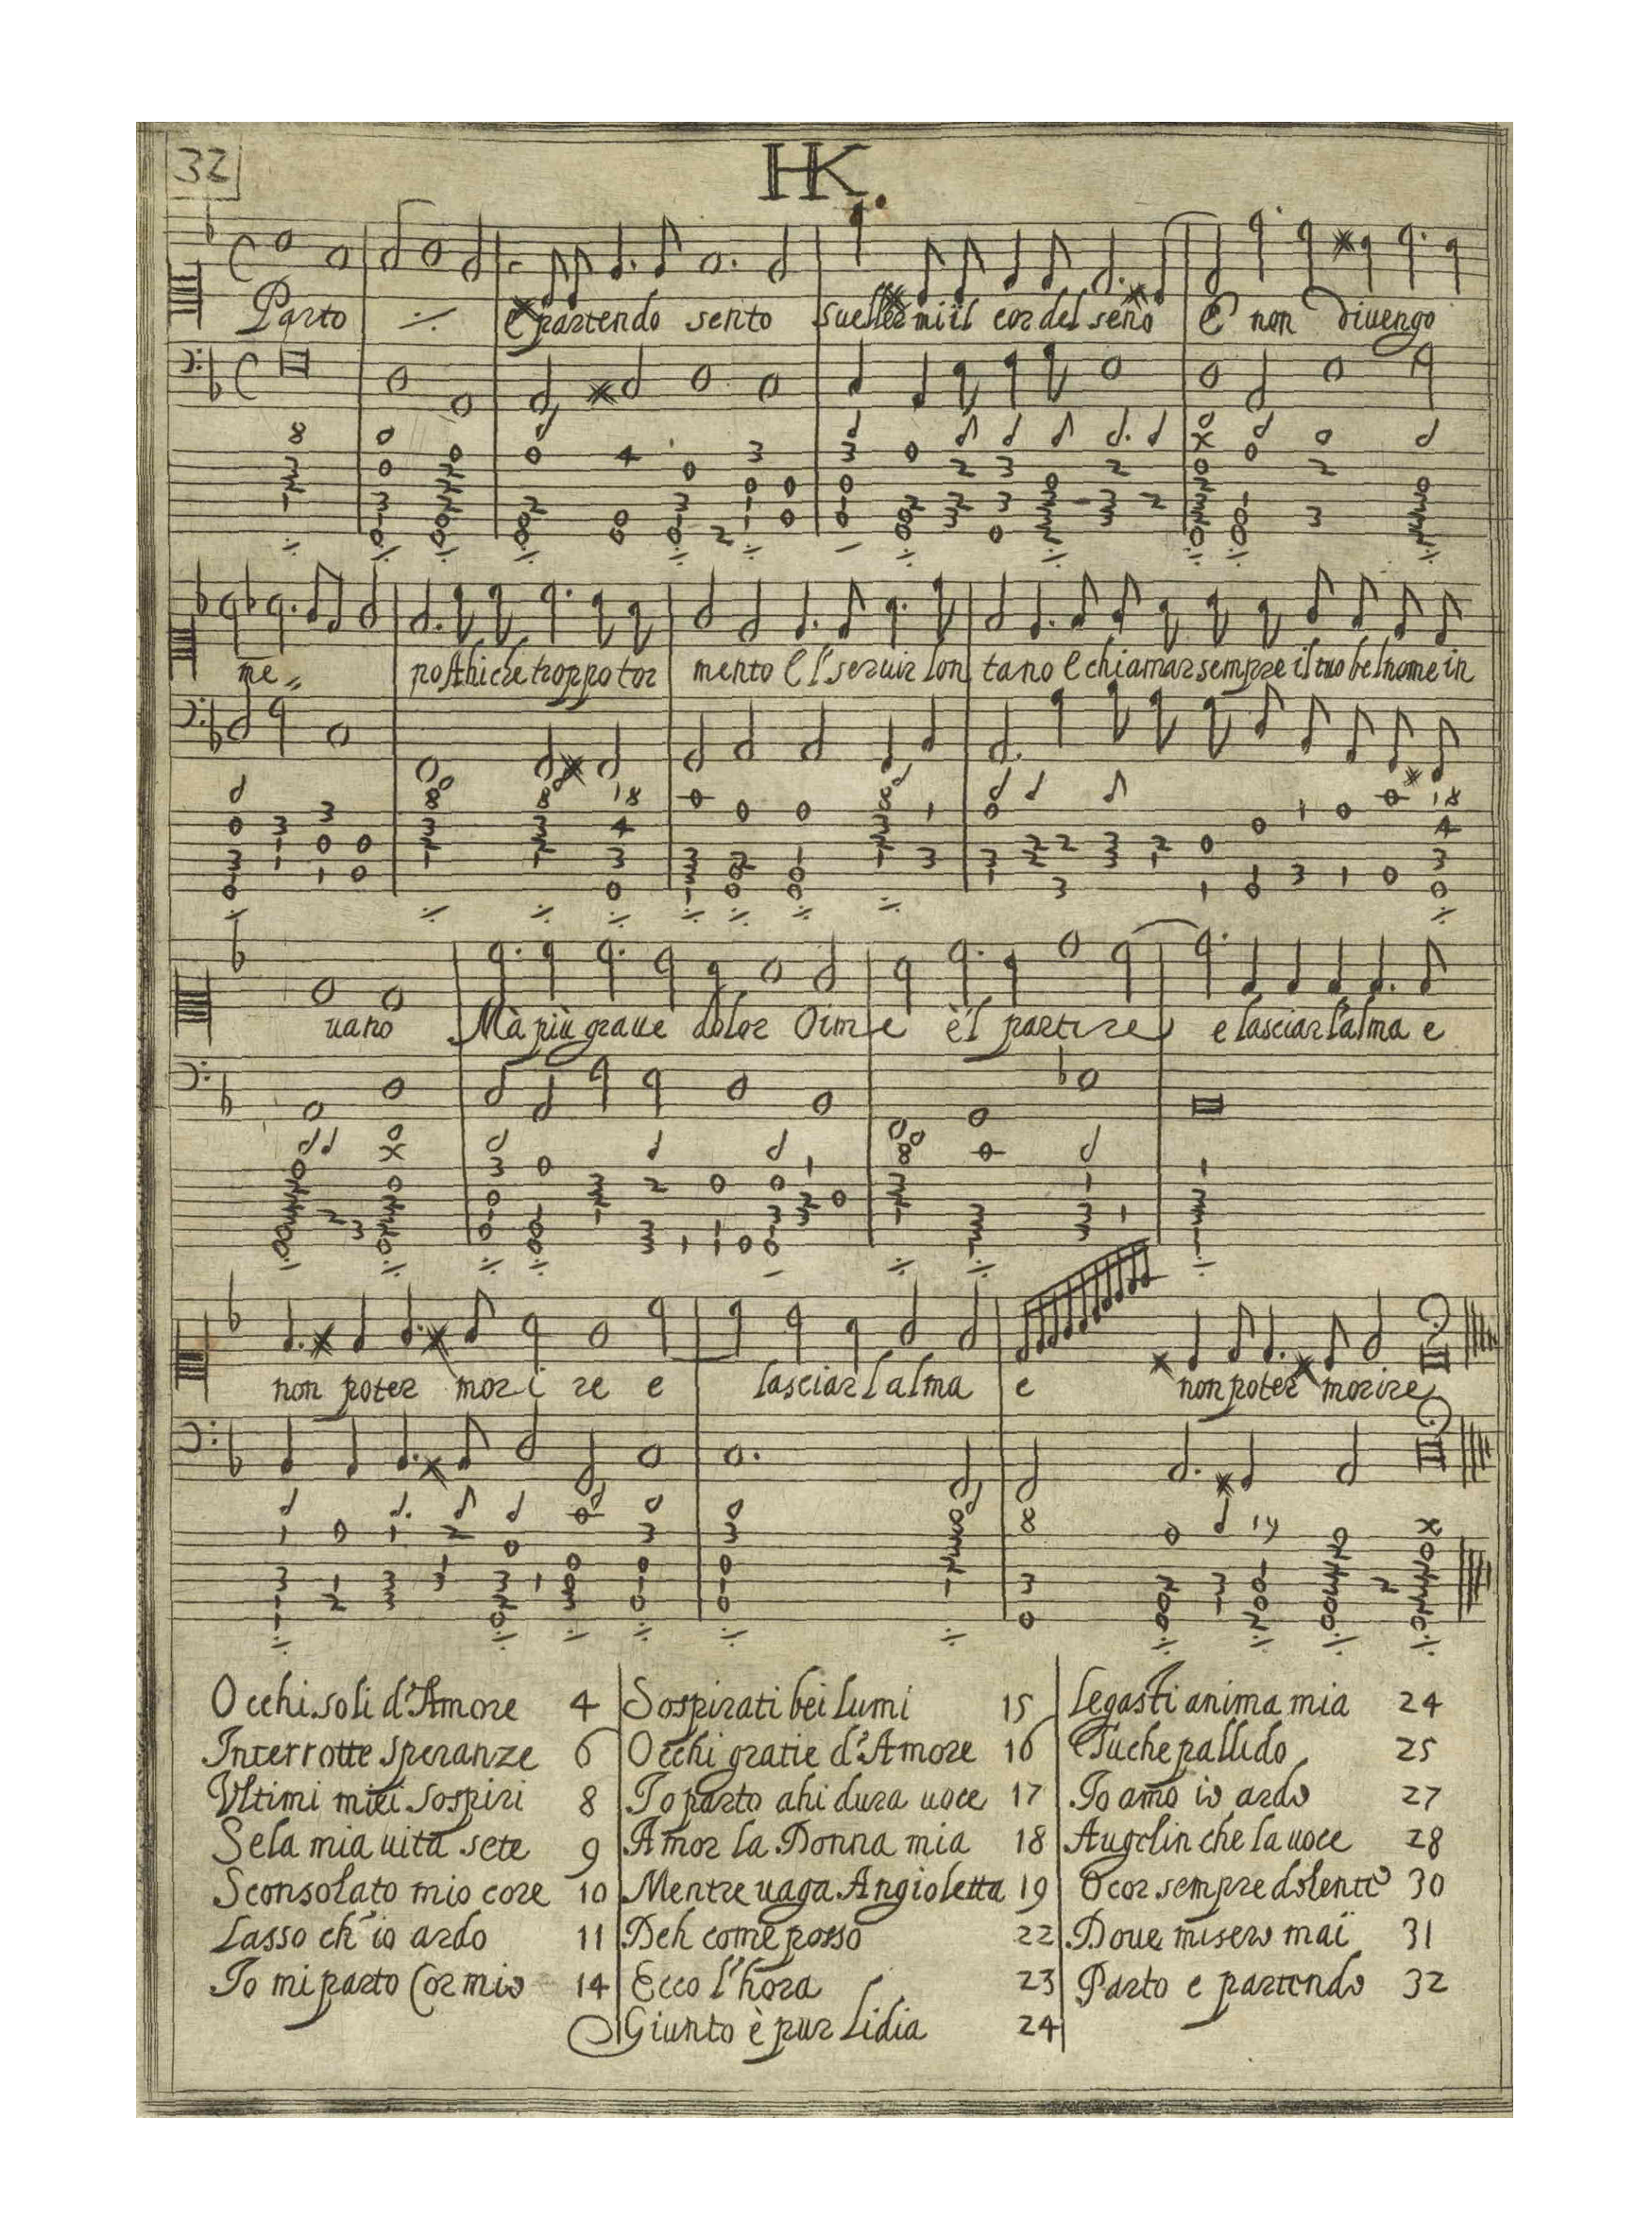 32
HK.
Parto e partendo sento sueller mi il cor del seno E non divengo
me posthi che troppo tor mento E l'servir lon tano E chiamar sempre il tuo bel nome in
uano Mà più graue dolor Oime è'l partire e lasciar l'alma e
non poter mori re e lasciar l'alma e non poter morire
Occhi soli d'Amore 4
Interrotte Speranze 6
Vltimi miei Sospiri 8
Se la mia uita sete 9
Sconsolato mio core 10
Lasso ch'io ardo 11
Io mi parto Cor mio 14
Sospirati bei Lumi 15
Occhi gratie d'Amore 16
Io parto ahi dura uoce 17
Amor la Donna mia 18
Mentre uaga Angioletta 19
Deh come posso 22
Ecco l'hora 23
Giunto è pur Lidia 24
Legasti anima mia 24
Tu che pallido 25
Io amo io ardo 27
Augelin che la uoce 28
O cor sempre dolente 30
Doue misero mai 31
Parto e partendo 32